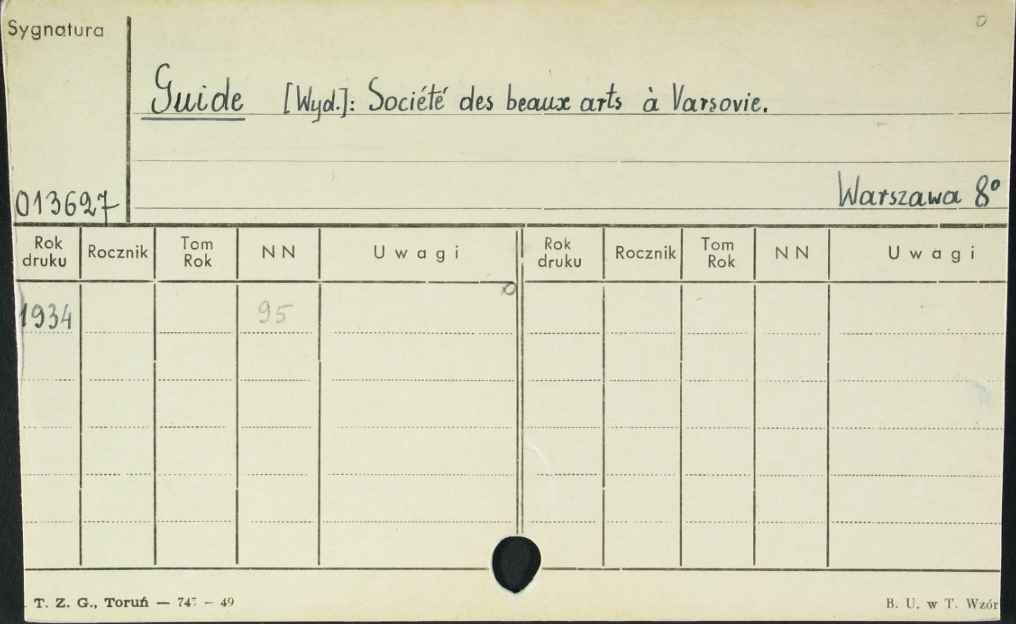 Sygnatura
Guide [Wyd.]: Société des beaux arts à Varsovie.
013627
Warszawa 8°
Rok druku Rocznik Tom Rok NN Uwagi Rok druku Rocznik Tom Rok NN Uwagi
1934 95
T. Z. G., Toruń — 49
B. U. w T. Wzór